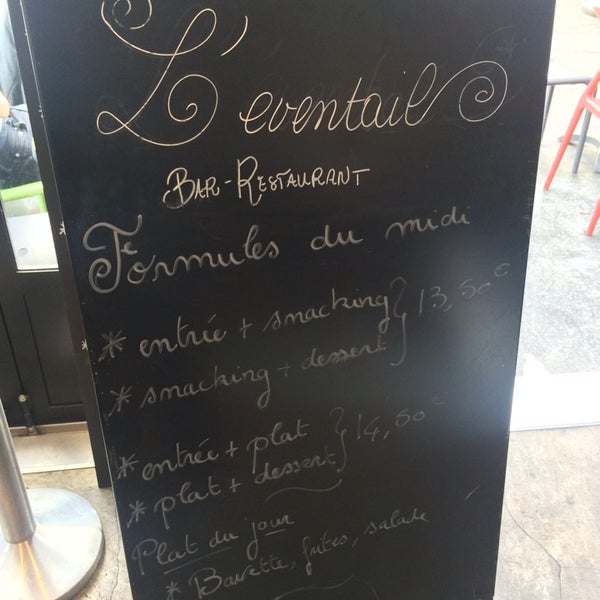 L'eventail
Bar-Restaurant
Formules du midi
* entrée + snacking } 13,50€
* snacking + dessert
* entrée + plat } 14,50€
* plat + dessert
Plat du jour
* Bavette, frites, salade